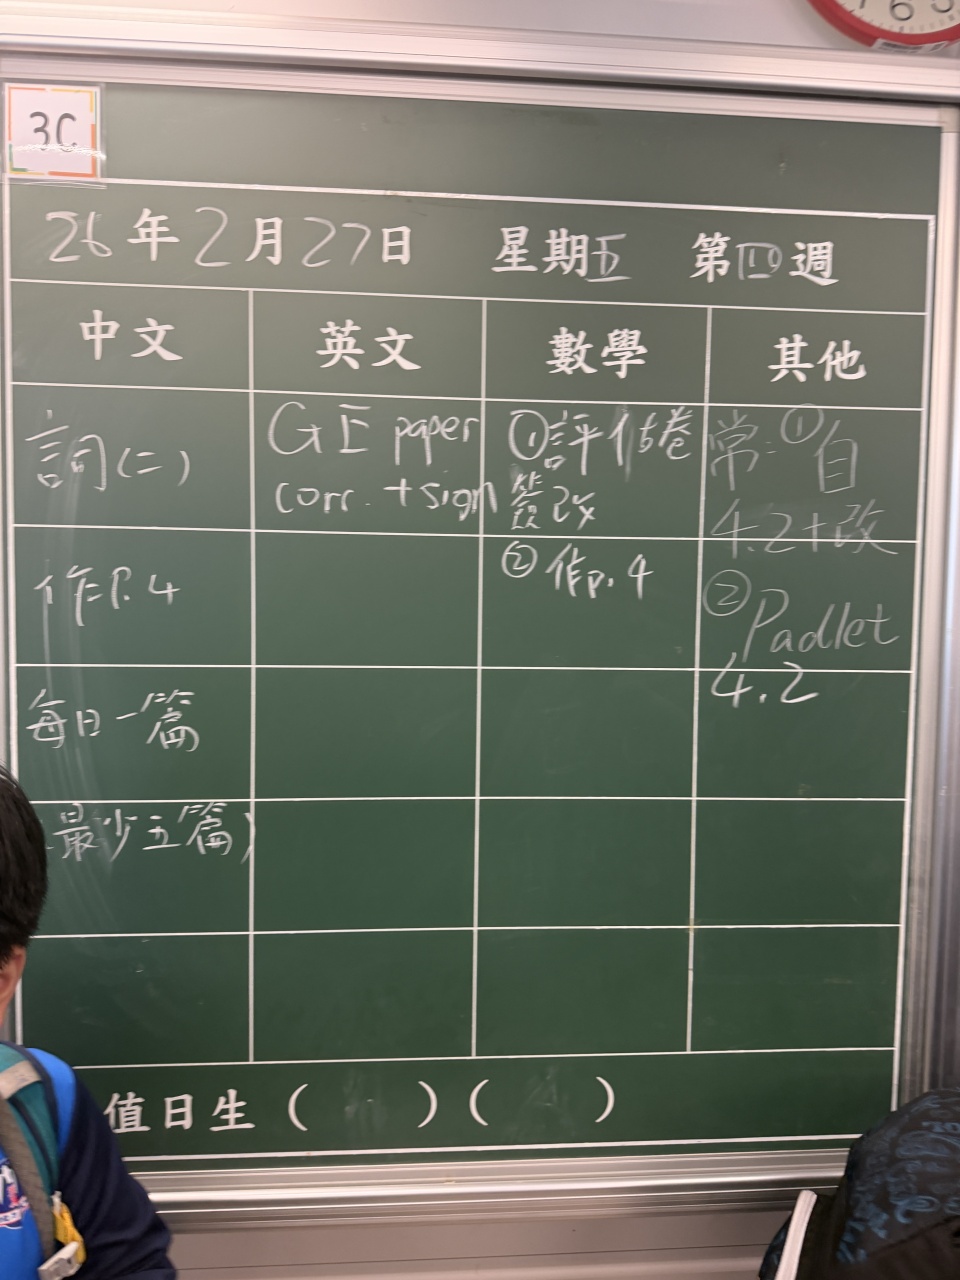 3C
26年2月27日 星期五 第四週
中文 英文 數學 其他
詞(二)
作P.4
每日一篇
最少五篇)
GE paper
corr. + sign
①評估卷
簽改
②作p.4
常:①自
4.2+改
②Padlet
4.2
值日生( )( )
6